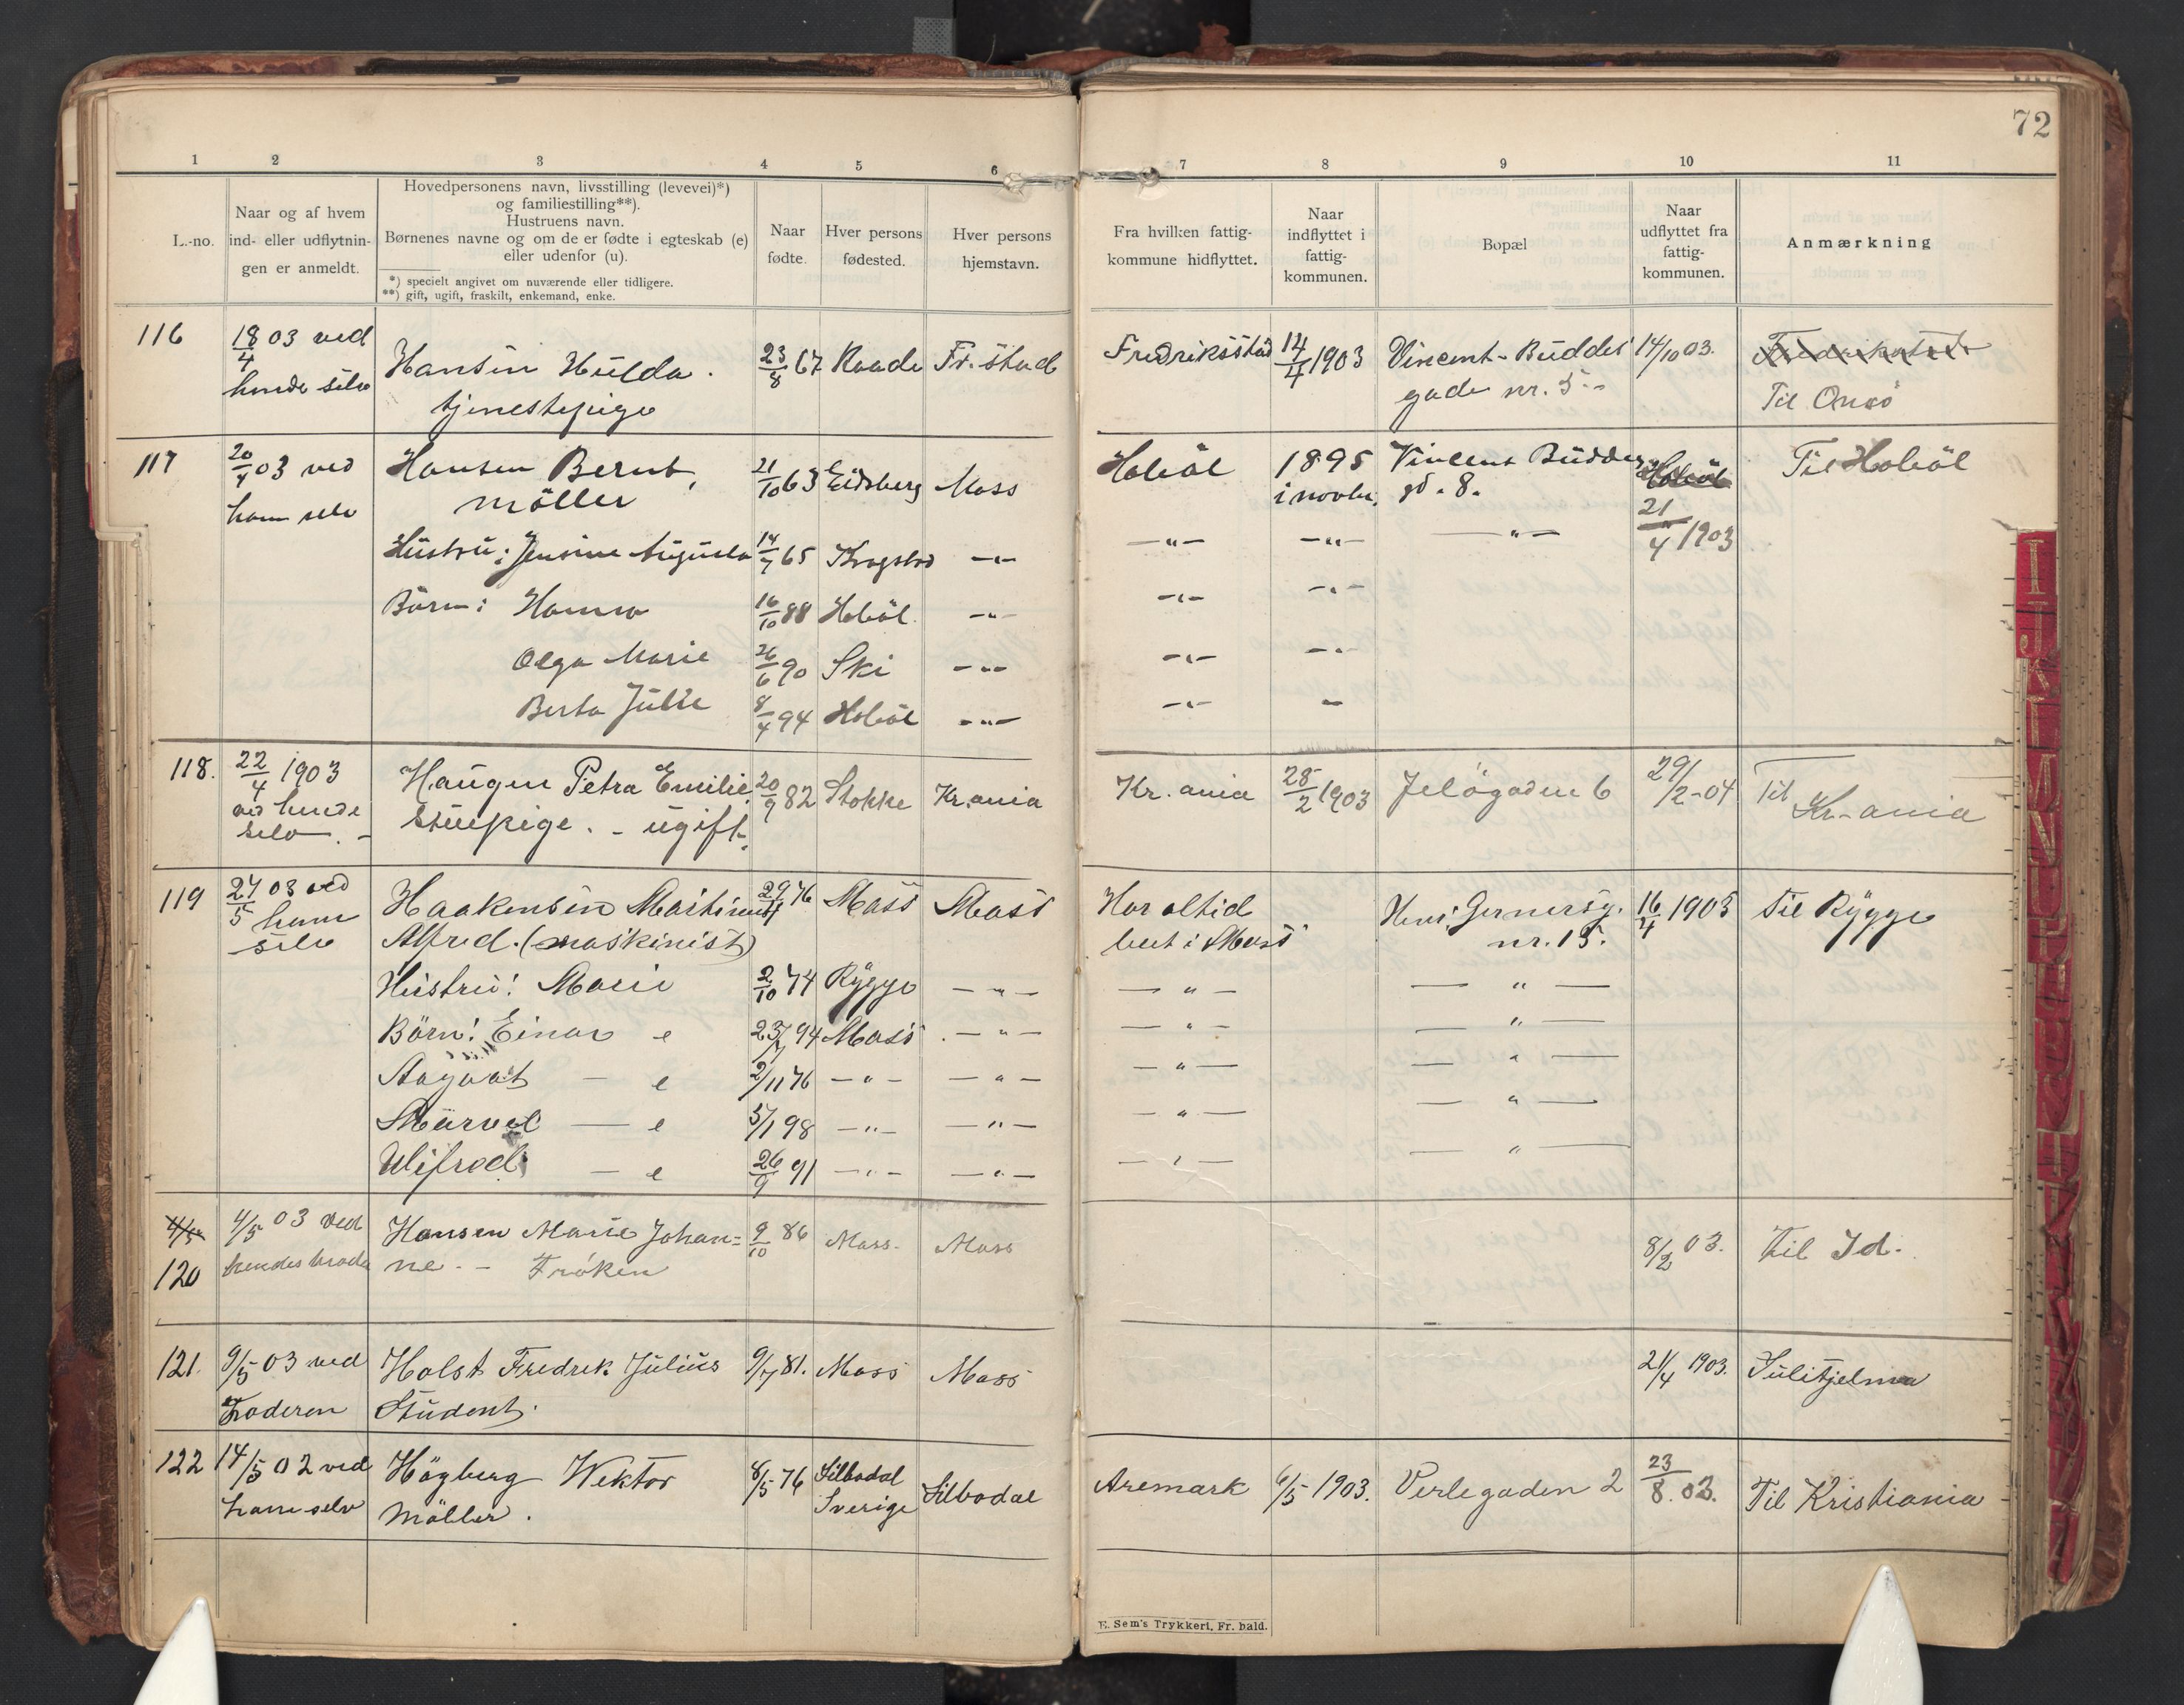 72
1 2 3 4 5 6 7 8 9 10 11
L.-no.
Naar og af hvem
ind- eller udflytnin-
gen er anmeldt.
Hovedpersonens navn, livsstilling (levevei)*)
og familiestilling**).
Hustruens navn.
Børnenes navne og om de er fødte i egteskab (e)
eller udenfor (u).
*) specielt angivet om nuværende eller tidligere.
**) gift, ugift, fraskilt, enkemand, enke.
Naar
fødte.
Hver persons
fødested.
Hver persons
hjemstavn.
Fra hvilken fattig-
kommune hidflyttet.
Naar
indflyttet i
fattig-
kommunen.
Bopæl
Naar
udflyttet fra
fattig-
kommunen.
Anmærkning
116 18/4 03 ved Hansen Hulda. 23/8 67 Raade Fr.stad Fredriksstad 14/4 1903 Vincent-Buddes 14/10 03. Fredrikstad
hende selv tjenestepige gade nr. 5 Til Onsö
117 20/4 03 ved Hansen Bernt, 21/10 63 Eidsberg Moss Hoböl 1895 Vincent Buddes Hoböl Til Hoböl
ham selv möller i novbr. gd. 8. 21/4 1903
Hustru: Jensine Augusta 14/7 65 Kragstad -"- -"- -"- -"-
Börn: Hanna 16/10 88 Hoböl -"- -"- -"-
Olga Marie 26/6 90 Ski -"- -"- -"-
Berta Julie 8/4 94 Hoböl -"- -"- -
118. 22/4 1903 Haugen Petra Emilie 20/9 82 Stokke Kr.ania Kr.ania 28/2 1903 Jelögaden 6 29/2-04 Til Kr-ania
ved hende stuepige. - ugift.
selv. -
119 27/5 03 ved Haakensen Martinus 29/4 76 Moss Moss Har altid Henr. Gernersg. 16/4 1903 Til Rygge
ham Alfred. (maskinist) boet i Moss nr. 15.
selv
Hustru: Marie 2/10 74 Rygge -"- -"- -"-
Börn: Einar e 23/7 94 Moss -"- -"- -"-
Aagoat - e 2/11 76 -"- -"- -"- -"-
Marvel - e 5/1 98 -"- -"- -"- -"-
Ulifred - e 26/9 91 -"- -"- -"- -"-
4/5 4/5 03 ved Hansen Marie Johan= 9/10 86 Moss. Moss 8/2 03. Til Id.
120 hendes broder ne. - Fröken
121. 9/5 03 ved Holst Fredrik Julius 9/7 81. Moss Moss 21/4 1903. Sulitjelma
Faderen Student.
122 14/5 02 ved Högberg Wektor 8/5 76 Silbodal Silbodal Aremark 6/5 1903. Verlegaden 2 23/8. 03. Til Kristiania
ham selv Möller. Sverige
E. Sem's Trykkeri, Fr. hald.
I
J
K
L
M
N